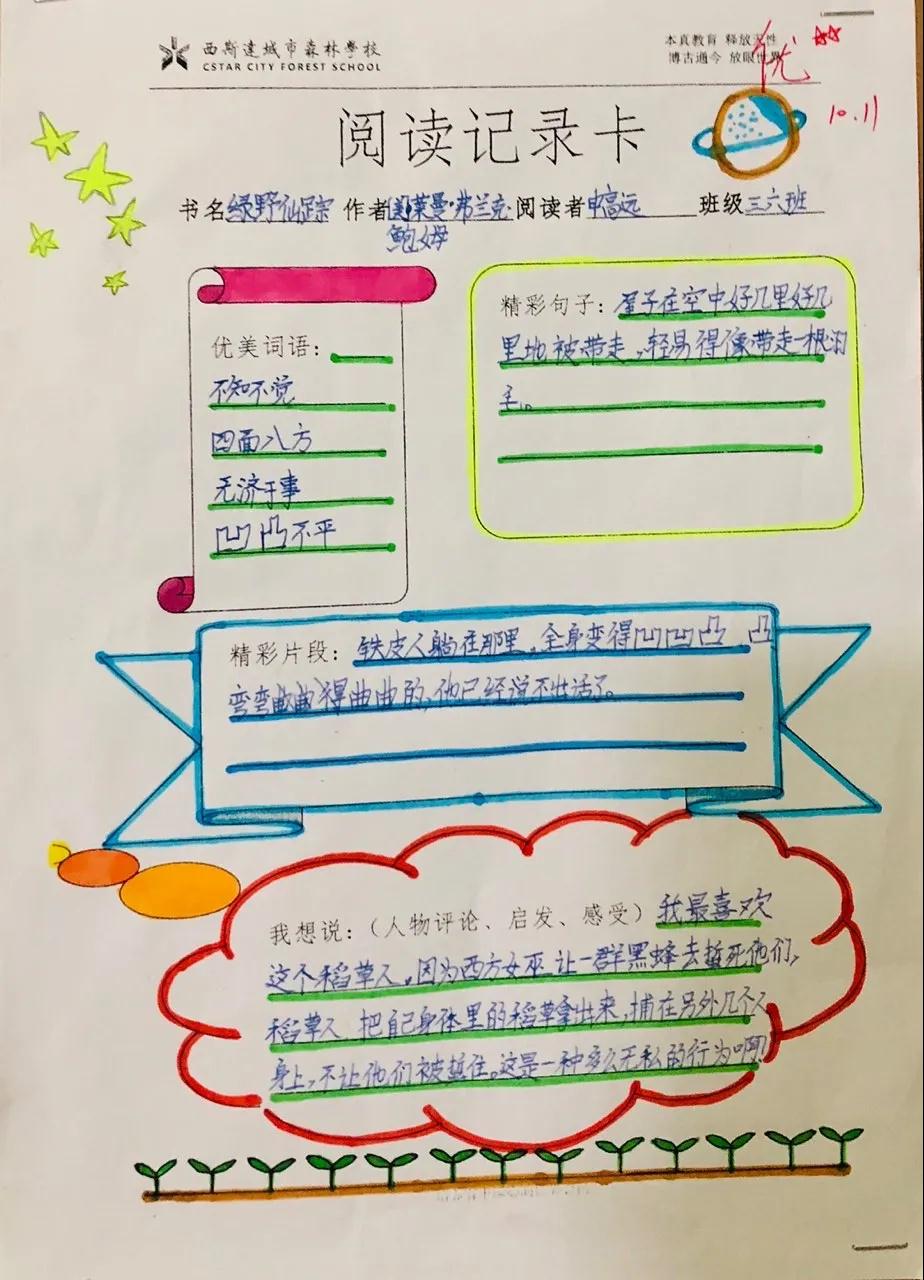 西斯達城市森林學校
CSTAR CITY FOREST SCHOOL
本真教育 释放天性
博古通今 放眼世界
优
10.11
阅读记录卡
书名绿野仙踪 作者莱曼·弗兰克 阅读者申高远 班级三六班
鲍姆
优美词语：
不知不觉
四面八方
无济于事
凹凸不平
精彩句子：屋子在空中好几里好几
里地被带走，轻易得像带走一根羽
毛。
精彩片段：铁皮人躺在那里，全身变得凹凹凸凸
弯弯曲曲得曲曲的，他已经说不出话了。
我想说：（人物评论、启发、感受）我最喜欢
这个稻草人，因为西方女巫让一群黑蜂去蜇死他们，
稻草人把自己身体里的稻草拿出来，捕在另外几个人
身上，不让他们被蜇住。这是一种多么无私的行为啊！